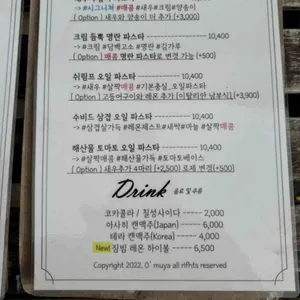 → #시그니처 #매콤 #새우#크림#양송이
( Option ) 새우와 양송이 더 추가 (+3,000)
크림 듬뿍 명란 파스타 ---------- 10,400
→ #크림 #담백고소 #명란 #김가루
( Option ) 매콤 명란 파스타로 변경 가능 (+500)
쉬림프 오일 파스타 ---------- 10,400
→ #새우 #살짝매콤 #기본충실_오일파스타
( Option ) 고등어구이와 레몬 추가 [이탈리안 남부식] (+3,900)
수비드 삼겹 오일 파스타 ---------- 10,400
→ #삼겹살가득 #레몬제스트#새싹#마늘 #살짝매콤
해산물 토마토 오일 파스타 ---------- 10,400
→ #살짝매콤 #해산물가득 #토마토베이스
( Option ) 새우추가 4마리 (+2,500) 로제 변경(+500)
Drink 음료 및 주류
코카콜라 / 칠성사이다 ----- 2,000
아사히 캔맥주(Japan) ----- 6,000
테라 캔맥주(Korea) ----- 4,000
New! 짐빔 레몬 하이볼 ----- 6,500
Copyright 2022, O' muya all rifhts reserved